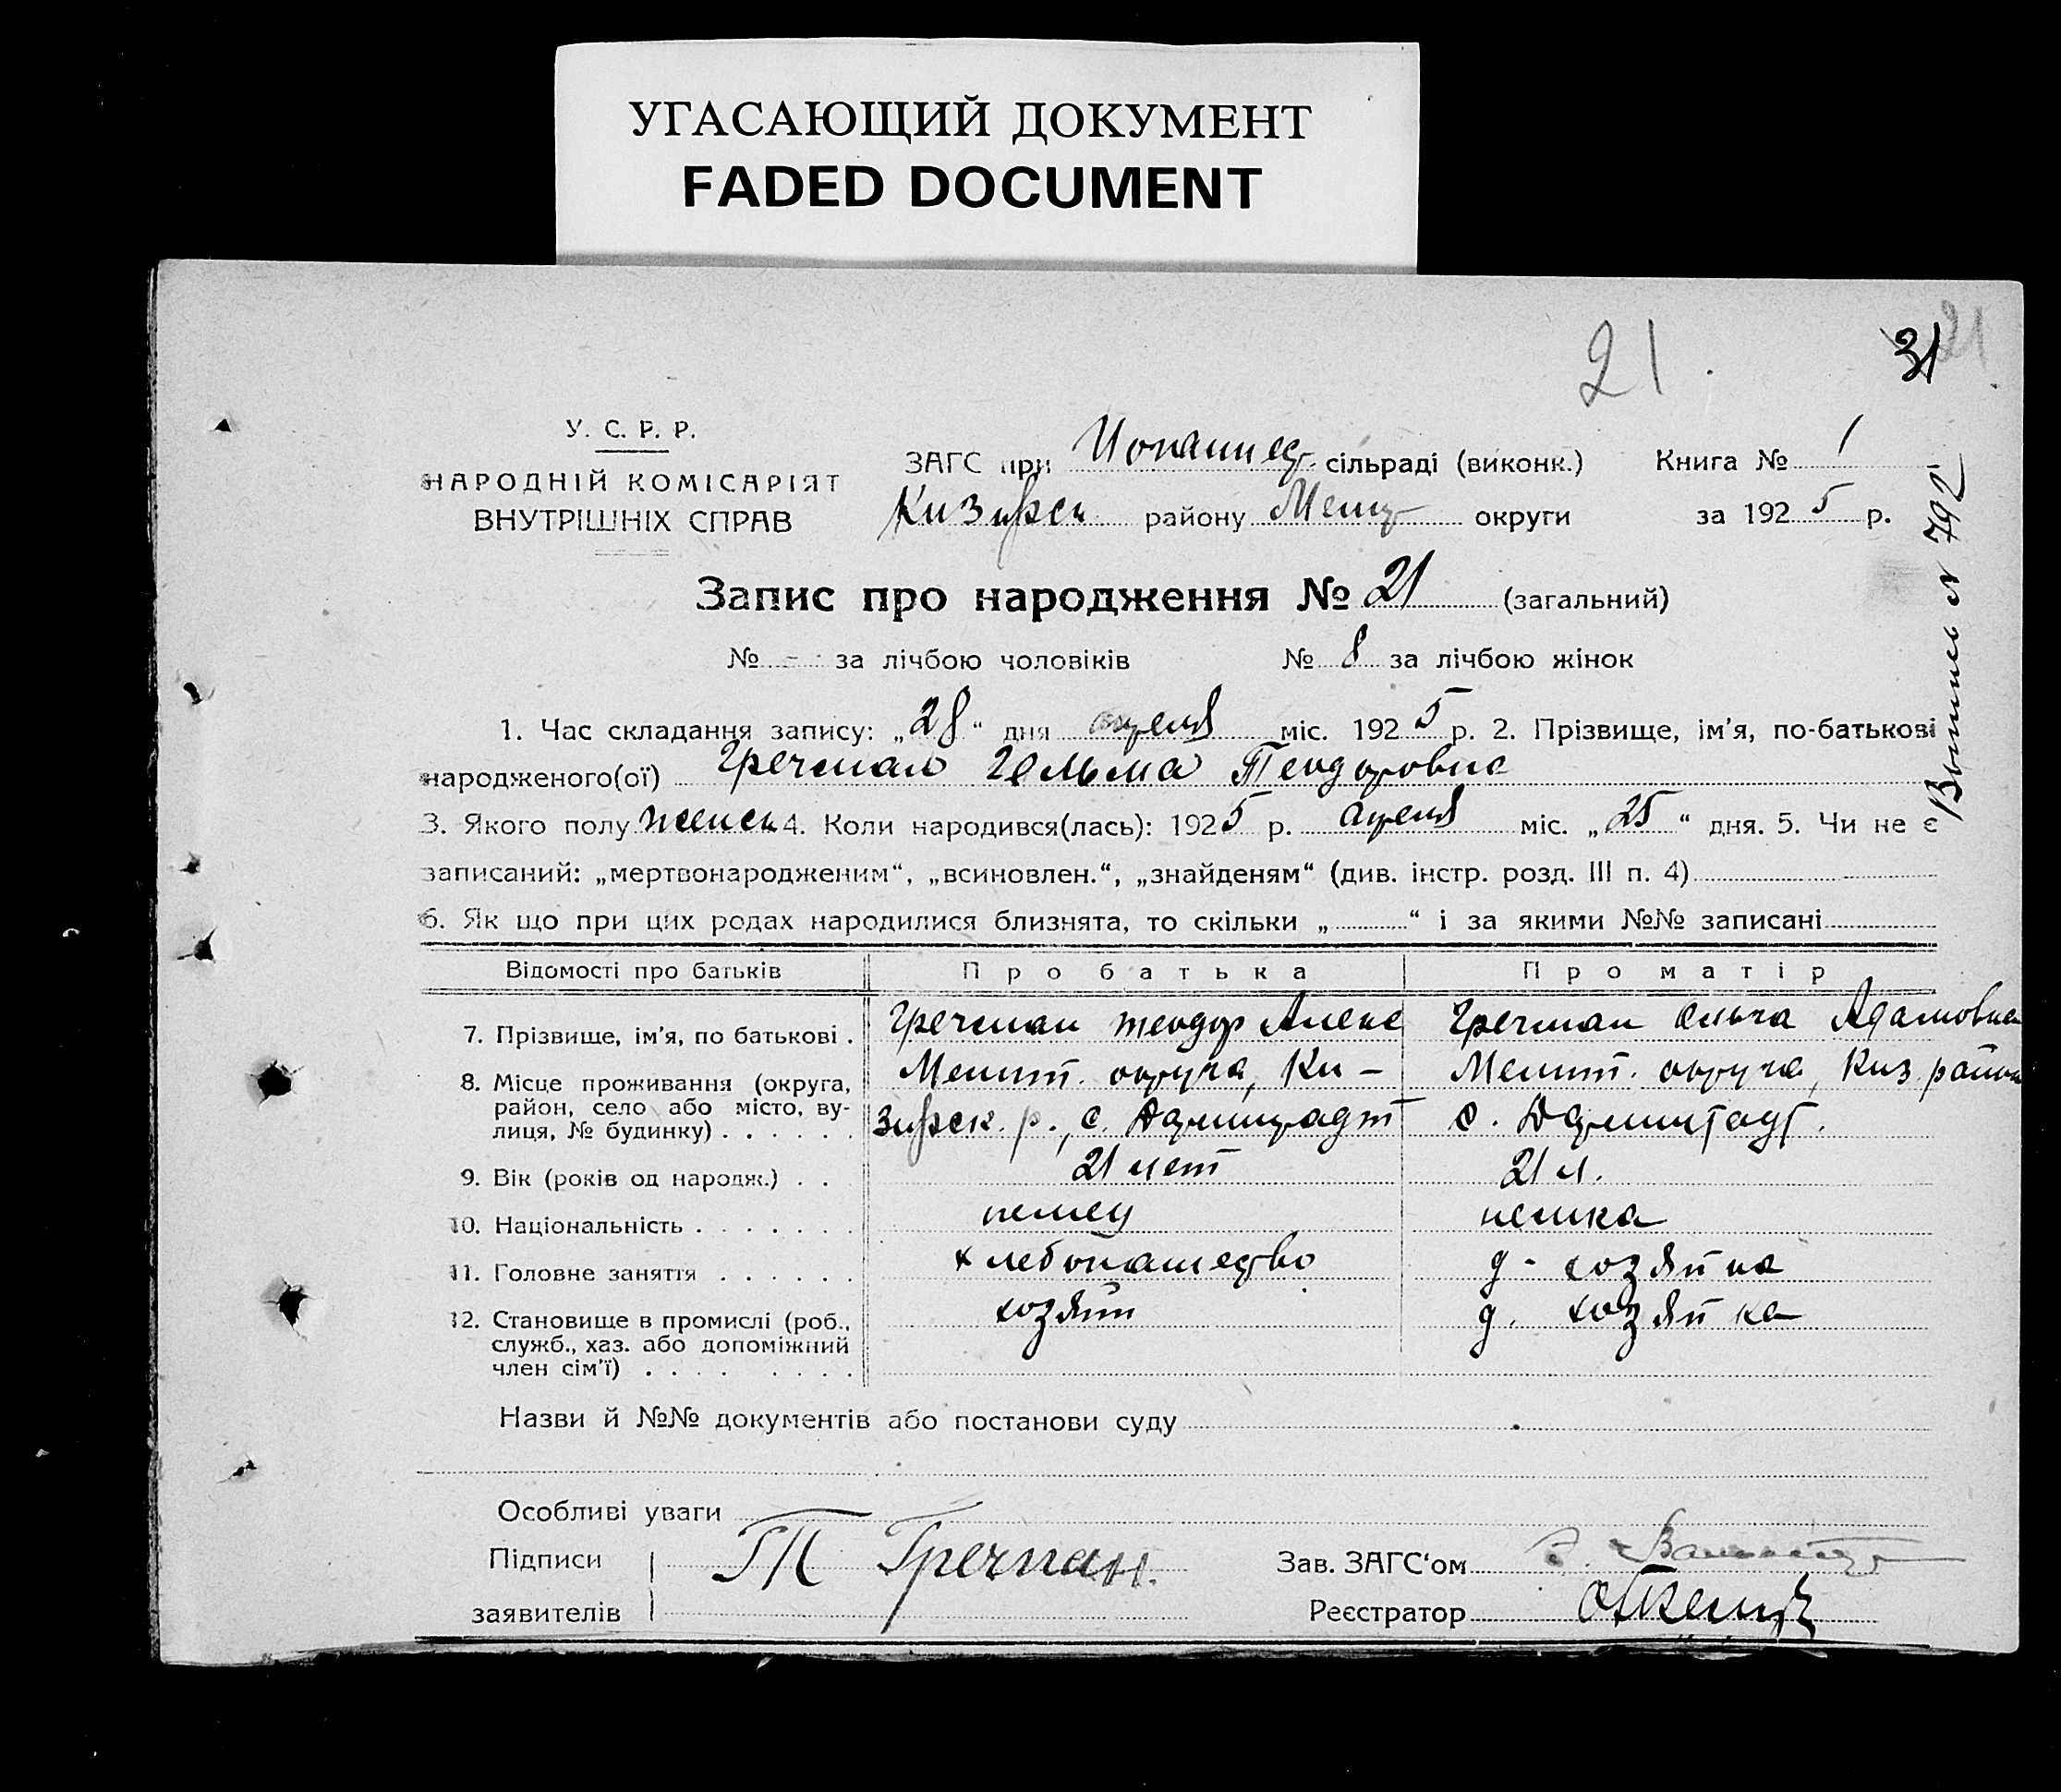 УГАСАЮЩИЙ ДОКУМЕНТ
FADED DOCUMENT
21.
31
21
У. С. Р. Р.
НАРОДНІЙ КОМІСАРІЯТ
ВНУТРІШНІХ СПРАВ
ЗАГС при сільраді (виконк.) Книга № 1
району округи за 1925 р.
Выпись N 792
Запис про народження № 21 (загальний)
№ - за лічбою чоловіків № 8 за лічбою жінок
1. Час складання запису: „28“ дня апреля міс. 1925 р. 2. Прізвище, ім'я, по-батькові
народженого(ої) Гречман Гельма Теодоровна
3. Якого полу женск 4. Коли народився(лась): 1925 р. апреля міс. „25“ дня. 5. Чи не є
записаний: „мертвонародженим“, „всиновлен.“, „знайденям“ (див. інстр. розд. III п. 4)
6. Як що при цих родах народилися близнята, то скільки „ “ і за якими №№ записані
Відомості про батьків Про батька Про матір
7. Прізвище, ім'я, по батькові . Гречман Теодор Алекс Гречман Ольга Адамовна
8. Місце проживання (округа, район, село або місто, вулиця, № будинку) . . . . . . Мелит. округа, Ки-
зирск. р., с. Дармштадт Мелит. округа, Киз. район
с. Дармштадт.
9. Вік (років од народж.) . . 21 лет 21 л.
10. Національність . . . . . . немец немка
11. Головне заняття . . . . . . хлебопашество д - хозяйка
12. Становище в промислі (роб., служб., хаз. або допоміжний член сім'ї) . . . . . . . . хозяин д. хозяйка
Назви й №№ документів або постанови суду
Особливі уваги
Підписи
заявителів
Т Гречман.
Зав. ЗАГС'ом
Реєстратор